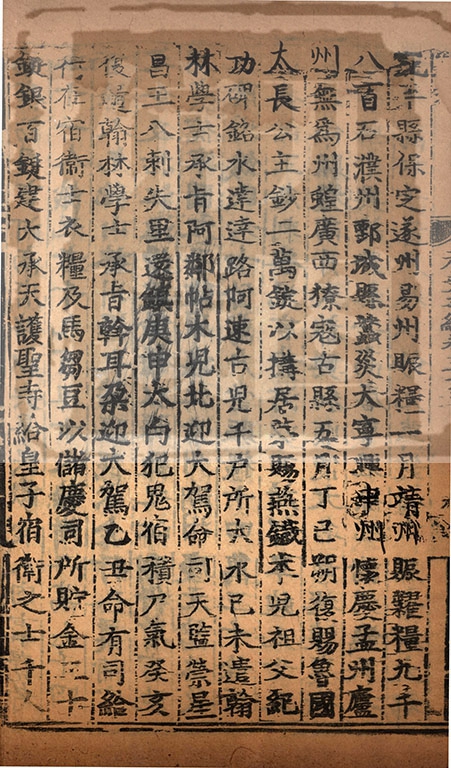 平縣保定遂州易州賑糧二月靖州賑糶糧九千
八百石濮州鄄城縣蠶災大寧興中州懷慶孟州廬
州無爲州蝗廣西獠寇古縣五月丁巳朔復賜魯國
太長公主鈔二萬錠以搆居第賜燕鐵木兒祖父紀
功碑銘水達達路阿速古兒千戶所大水己未遣翰
林學士承旨阿鄰帖木兒北迎大駕命司天監禜星
昌王八剌失里還鎮庚申太白犯鬼宿積尸氣癸亥
復遣翰林學士承旨斡耳朶迎大駕乙丑命有司給
行在宿衞士衣糧及馬芻豆以儲慶司所貯金三十
錠銀百錠建大承天護聖寺給皇子宿衞之士千人